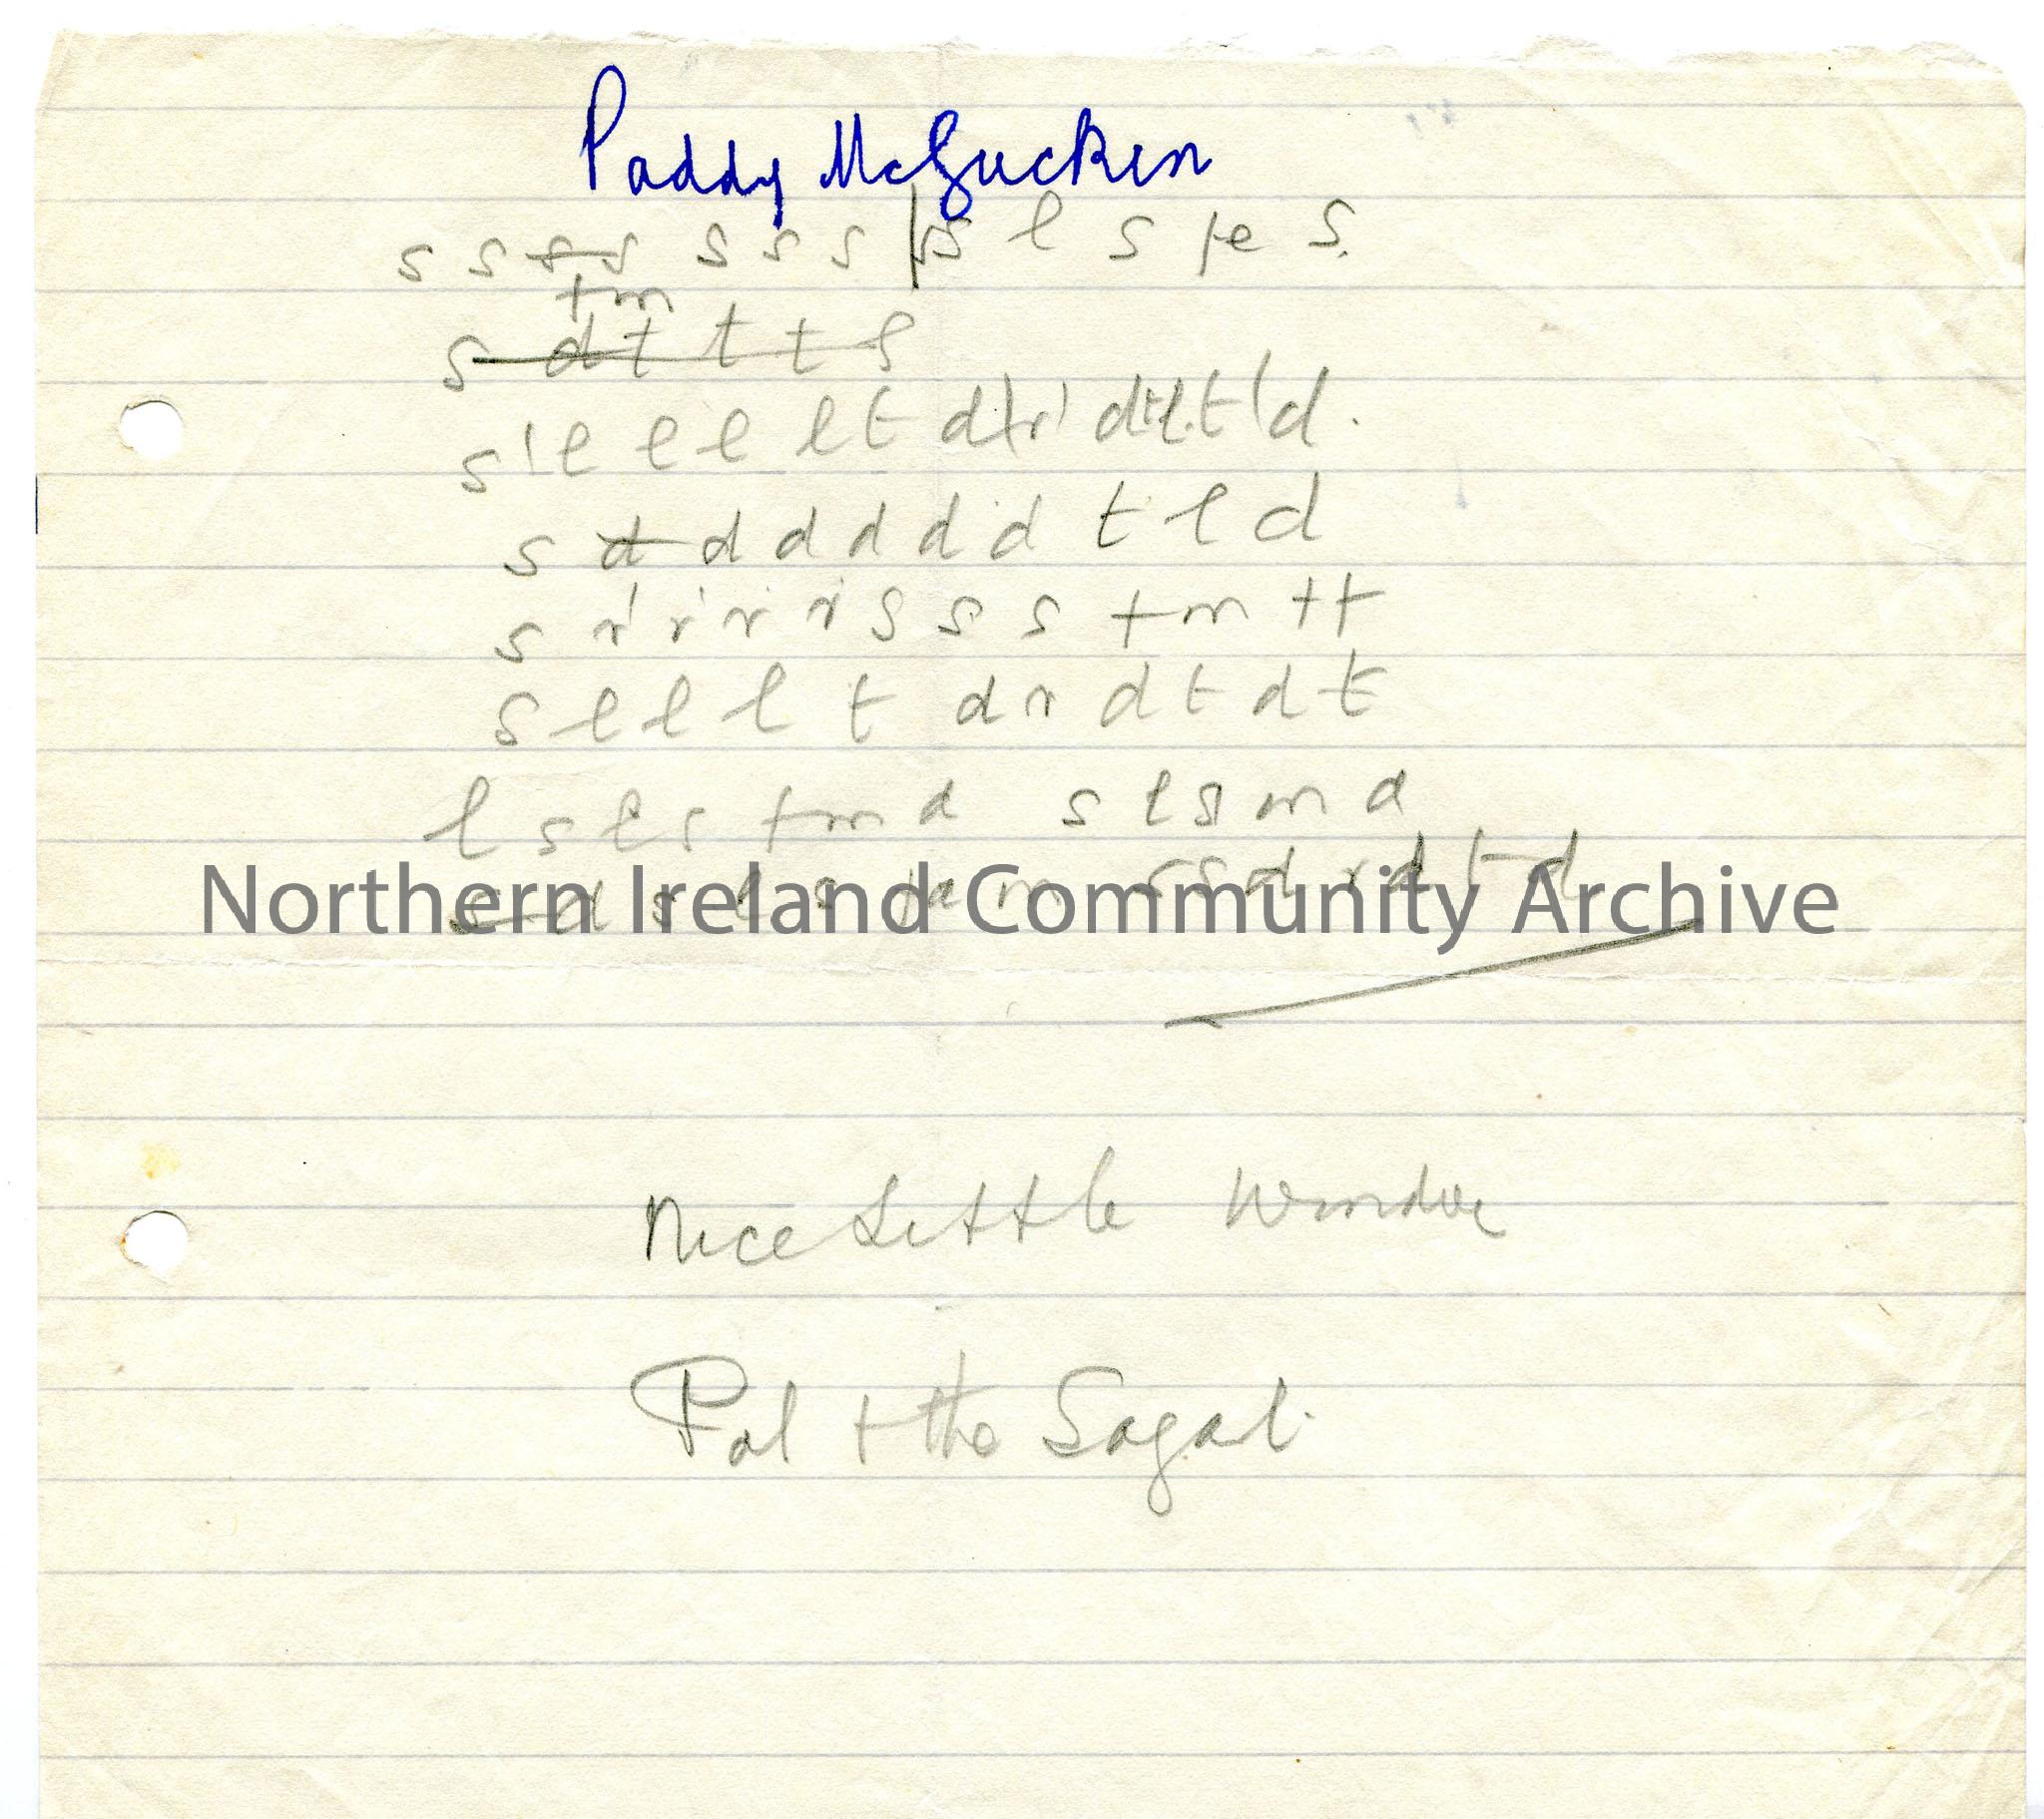 Paddy McGucken
s s s s s s s s l s fe s.
fm
s dt t t l
s' l l l l t d r' d t l t 'd.
s d d d d d d t l d
s r' r' r' r' s s s fm ff
s l l l t d r d t d t
l s l s fm d s l s m d
s d s l s m s s d r d t d
Northern Ireland Community Archive
Nice Little Window
Pal + the Sagart